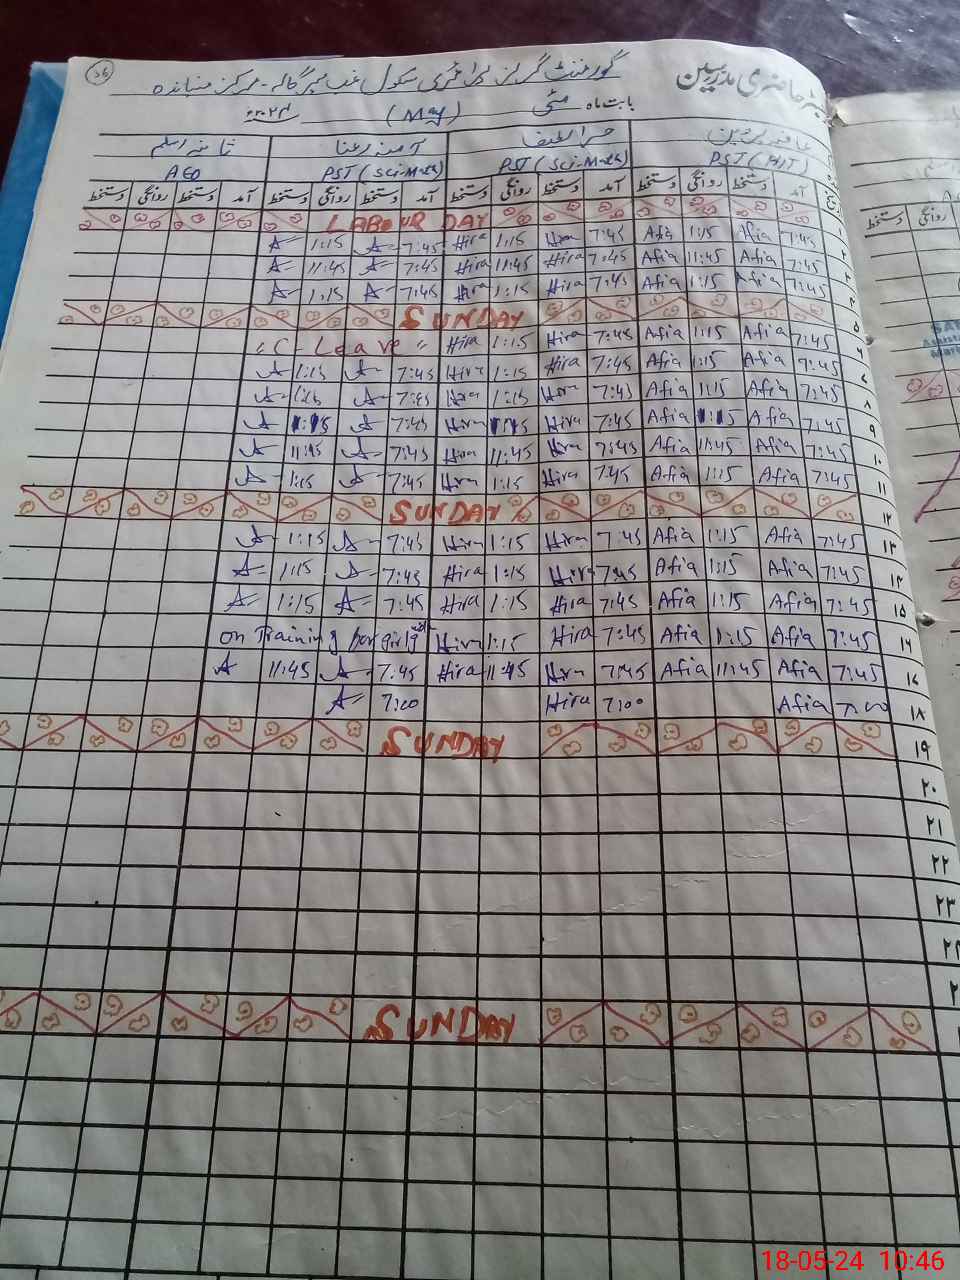 رجسٹر حاضری مدرسین گورنمنٹ گرلز پرائمری سکول مرکز
۲۶
بابت ماہ مئی (May) ۲۰۲۴ء
حرا لطیف آمنہ رعنا ثانیہ اسلم
PST (Sci-Math) PST (Sci-Math) AEO
تاریخ آمد دستخط روانگی دستخط آمد دستخط روانگی دستخط آمد دستخط روانگی دستخط آمد دستخط روانگی دستخط
۱ LABOUR DAY
۲ 7:45 Afia 1:15 Afia 7:45 Hira 1:15 Hira 7:45 A 1:15 A
۳ 7:45 Afia 11:45 Afia 7:45 Hira 11:45 Hira 7:45 A 11:45 A
۴ 7:45 Afia 1:15 Afia 7:45 Hira 1:15 Hira 7:45 A 1:15 A
۵ SUNDAY
۶ 7:45 Afia 1:15 Afia 7:45 Hira 1:15 Hira "C-Leave"
۷ 7:45 Afia 1:15 Afia 7:45 Hira 1:15 Hira 7:45 A 1:15 A
۸ 7:45 Afia 1:15 Afia 7:45 Hira 1:15 Hira 7:45 A 1:15 A
۹ 7:45 Afia 1:15 Afia 7:45 Hira 1:15 Hira 7:45 A 1:15 A
۱۰ 7:45 Afia 11:45 Afia 7:45 Hira 11:45 Hira 7:45 A 11:45 A
۱۱ 7:45 Afia 1:15 Afia 7:45 Hira 1:15 Hira 7:45 A 1:15 A
۱۲ SUNDAY
۱۳ 7:45 Afia 1:15 Afia 7:45 Hira 1:15 Hira 7:45 A 1:15 A
۱۴ 7:45 Afia 1:15 Afia 7:45 Hira 1:15 Hira 7:45 A 1:15 A
۱۵ 7:45 Afia 1:15 Afia 7:45 Hira 1:15 Hira 7:45 A 1:15 A
۱۶ 7:45 Afia 1:15 Afia 7:45 Hira 1:15 Hira on Training for girls
۱۷ 7:45 Afia 11:45 Afia 7:45 Hira 11:45 Hira 7:45 A 11:45 A
۱۸ 7:00 Afia 7:00 Hira 7:00 A
۱۹ SUNDAY
۲۰
۲۱
۲۲
۲۳
۲۴
SUNDAY
18-05-24 10:46